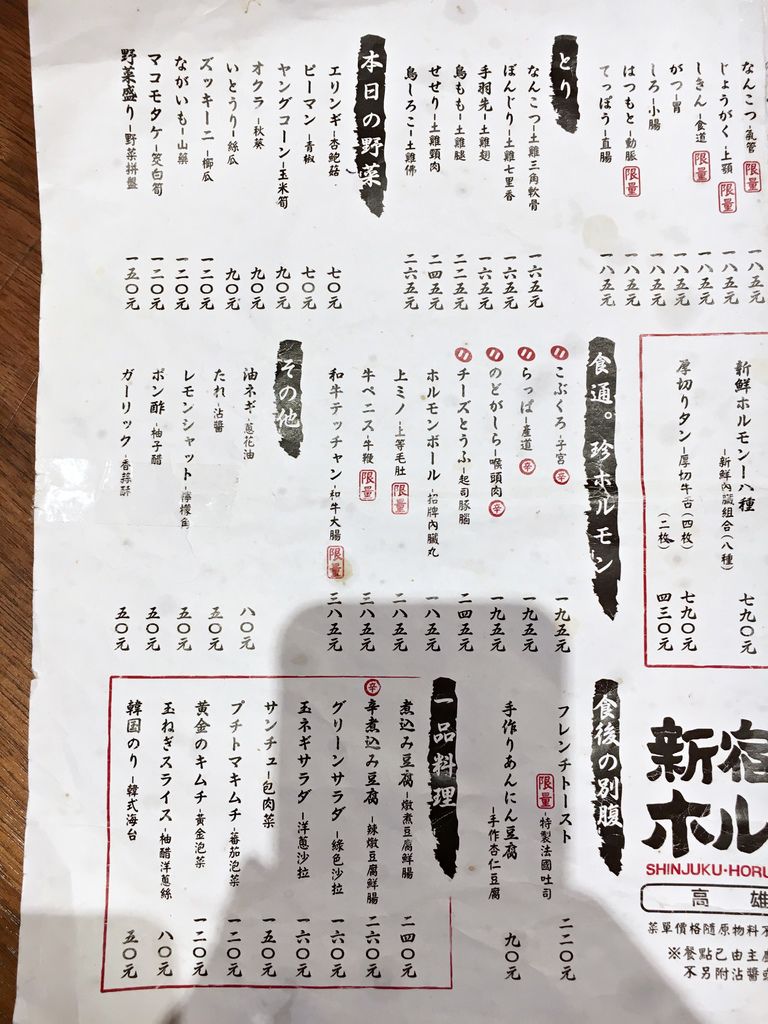 なんこつ-氣管 限量 一八五元
じょうがく-上顎 限量 一八五元
しきん-食道 限量 一八五元
がつ-胃 一八五元
しろ-小腸 一八五元
はつもと-動脈 限量 一八五元
てっぽう-直腸 一八五元
とり
なんこつ-土雞三角軟骨 一六五元
ぼんじり-土雞七里香 一六五元
手羽先-土雞翅 一六五元
鳥もも-土雞腿 二二五元
せせり-土雞頸肉 二四五元
鳥しろこ-土雞佛 二六五元
本日の野菜
エリンギ-杏鮑菇 七〇元
ピーマン-青椒 七〇元
ヤングコーン-玉米筍 九〇元
オクラ-秋葵 九〇元
いとうり-絲瓜 九〇元
ズッキーニ-櫛瓜 一二〇元
ながいも-山藥 一二〇元
マコモタケ-筊白筍 一二〇元
野菜盛り-野菜拼盤 一五〇元
新鮮ホルモン一八種 七九〇元
-新鮮內臟組合(八種)
厚切りタン-厚切牛舌(四枚) 七九〇元
(二枚) 四三〇元
食通。珍ホルモン
こぶくろ-子宮 辛 一九五元
らっぱ-產道 辛 一九五元
のどがしら-喉頭肉 辛 一九五元
チーズとうふ-起司豚腦 二四五元
ホルモンボール-招牌內臟丸 一八五元
上ミノ-上等毛肚 限量 二八五元
牛ペニス-牛鞭 限量 三八五元
和牛テッチャン-和牛大腸 限量 三八五元
その他
油ネギ-蔥花油 八〇元
たれ-沾醬 五〇元
レモンシャット-檸檬角 五〇元
ポン酢-柚子醋 五〇元
ガーリック-香蒜酥 五〇元
食後の別腹
フレンチトースト 二二〇元
限量-特製法國吐司
手作りあんにん豆腐 九〇元
-手作杏仁豆腐
一品料理
煮込み豆腐-燉煮豆腐鮮腸 二四〇元
辛 辛煮込み豆腐-辣燉豆腐鮮腸 二六〇元
グリーンサラダ-綠色沙拉 一六〇元
玉ネギサラダ-洋蔥沙拉 一六〇元
サンチュ-包肉菜 一五〇元
プチトマキムチ-蕃茄泡菜 一二〇元
黄金のキムチ-黃金泡菜 一二〇元
玉ねぎスライス-柚醋洋蔥絲 八〇元
韓国のり-韓式海台 五〇元
新宿
ホル
SHINJUKU・HORU
高雄
菜單價格隨原物料不
※餐點已由主
不另附沾醬